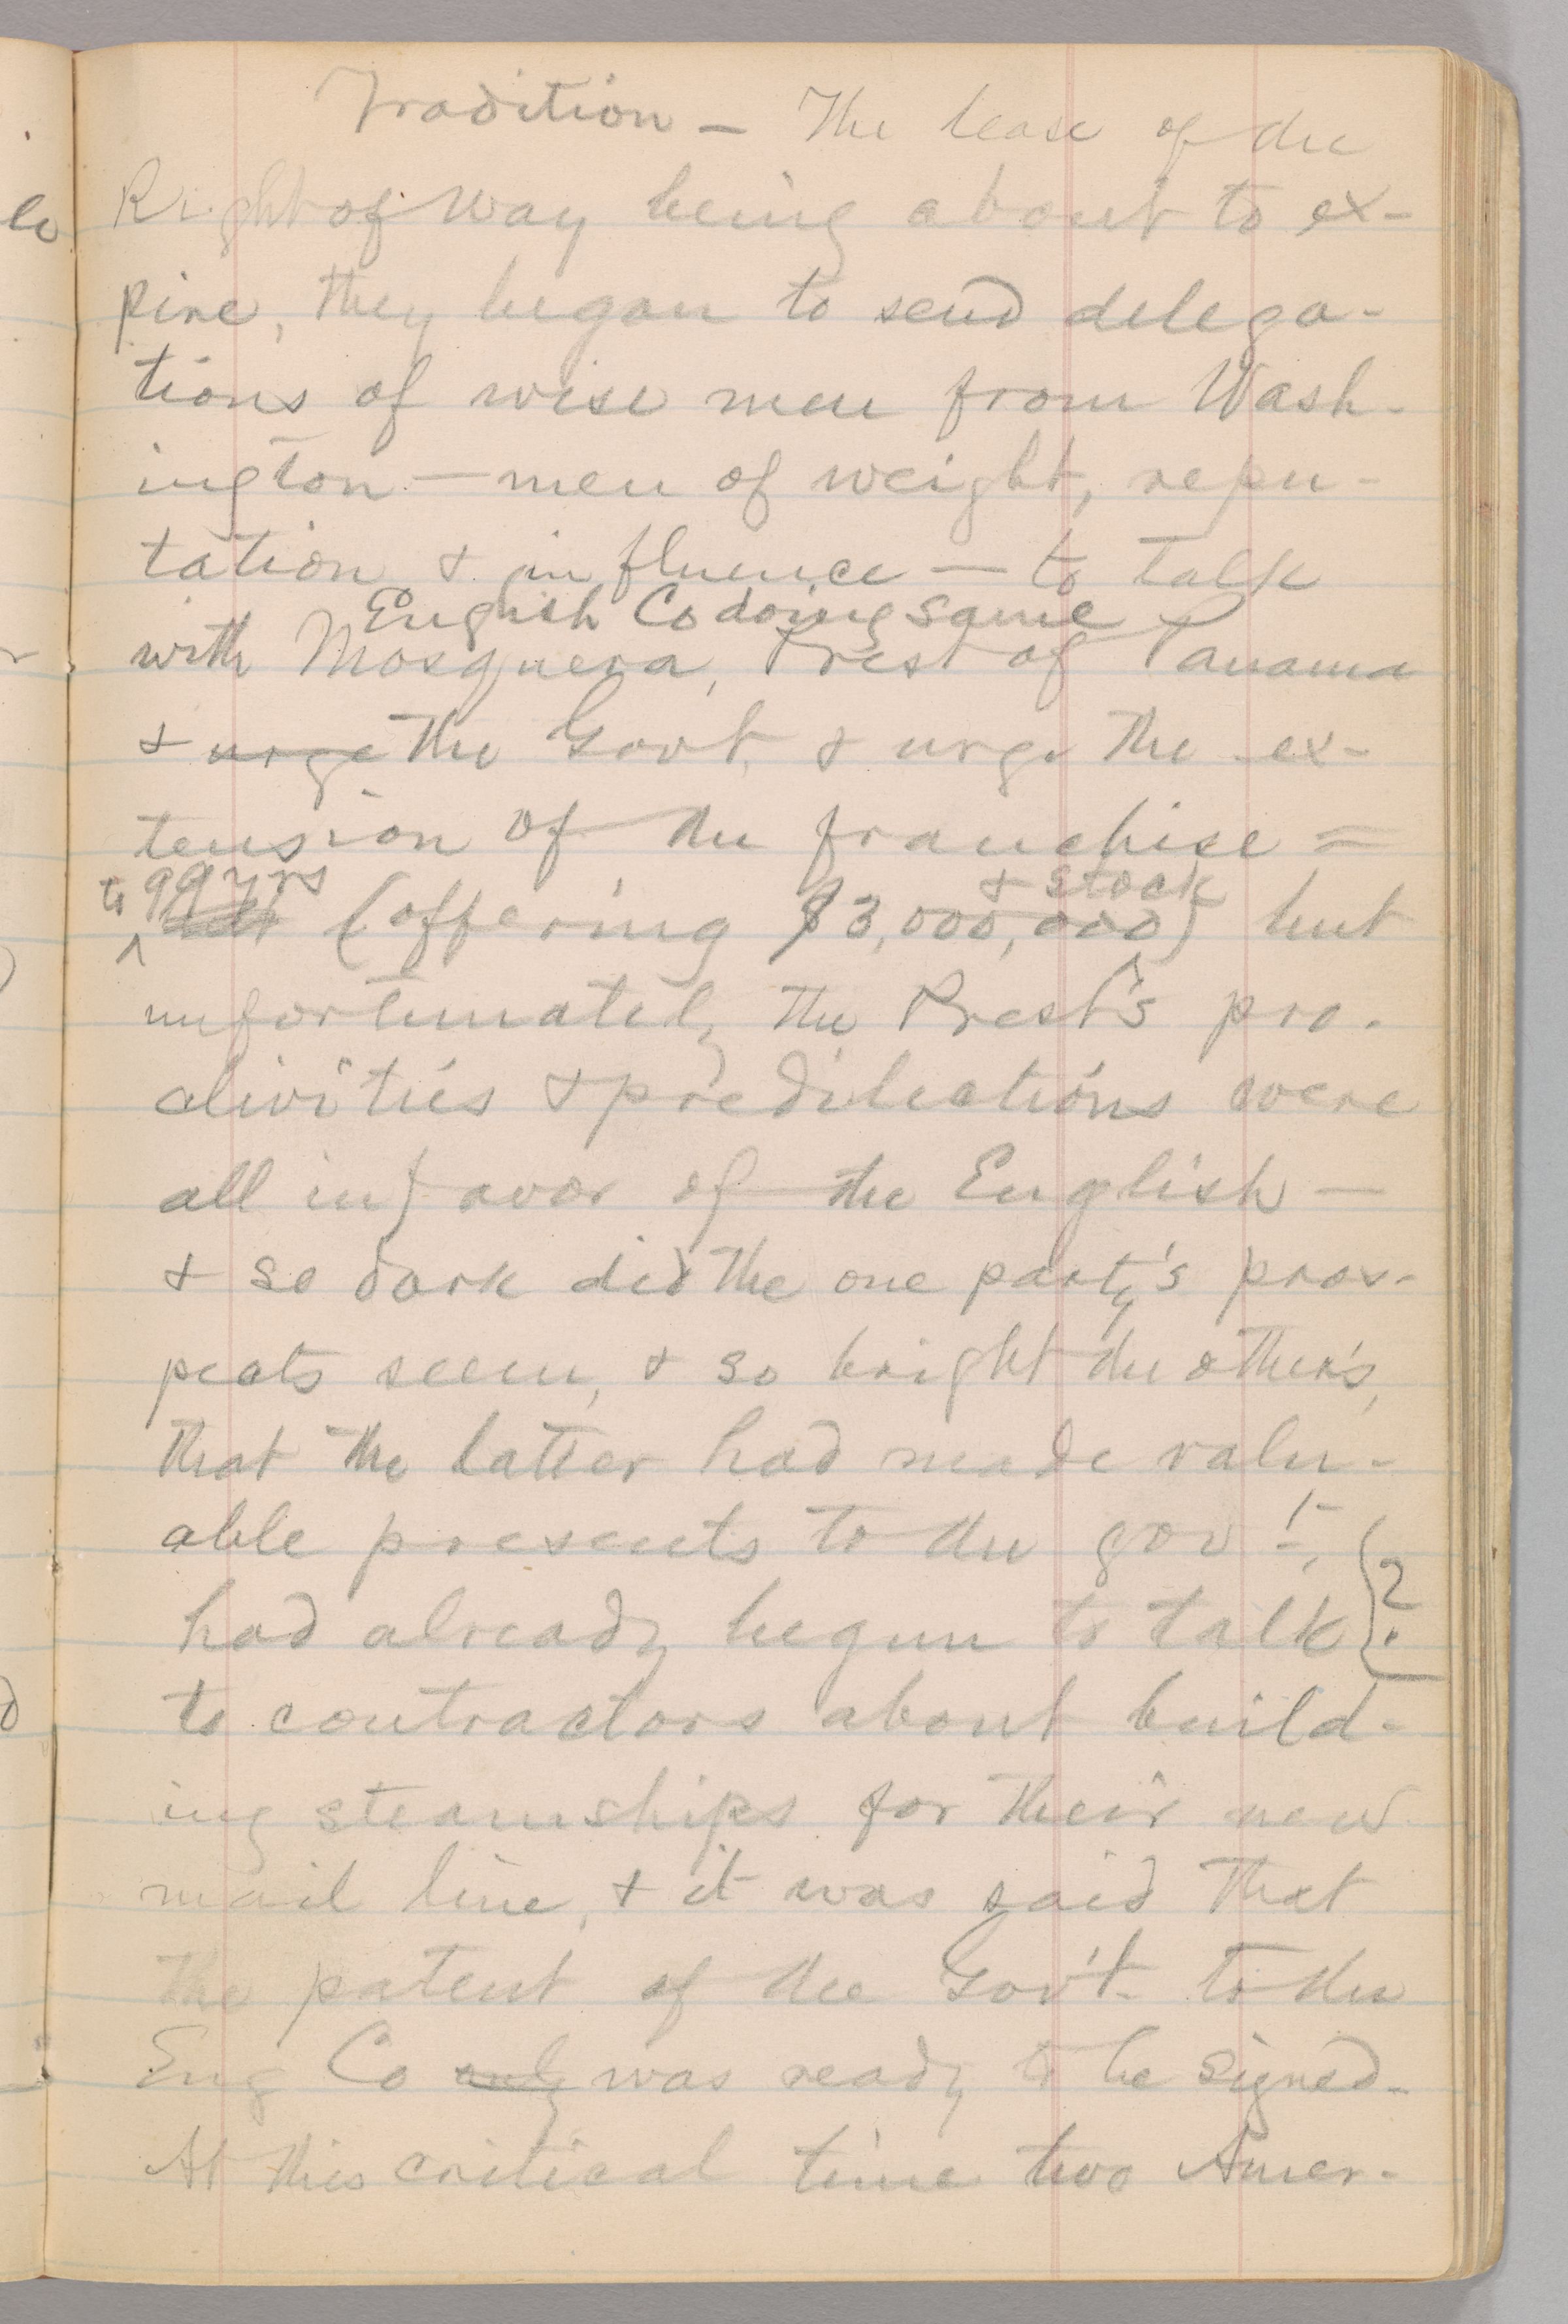 Tradition — The lease of the
Right of Way being about to ex-
pire, they began to send delega-
tions of wise men from Wash-
ington — men of weight, repu-
tation & influence — to talk
English Co doing same
with Mosquera, Prest of Panama
& urge the Govt, & urge the ex-
tension of the franchise =
to 99 yrs & stock
(offering $3,000,000) but
unfortunately the Prest's pro-
clivities & predilections were
all in favor of the English —
& so dark did the one party's pros-
pects seem, & so bright the other's,
that the latter had made valu-
able presents to the gov't,
had already begun to talk {?
to contractors about build-
ing steamships for their new
mail line, & it was said that
the patent of the Gov't to the
Eng Co only was ready to be signed.
At this critical time two Amer-